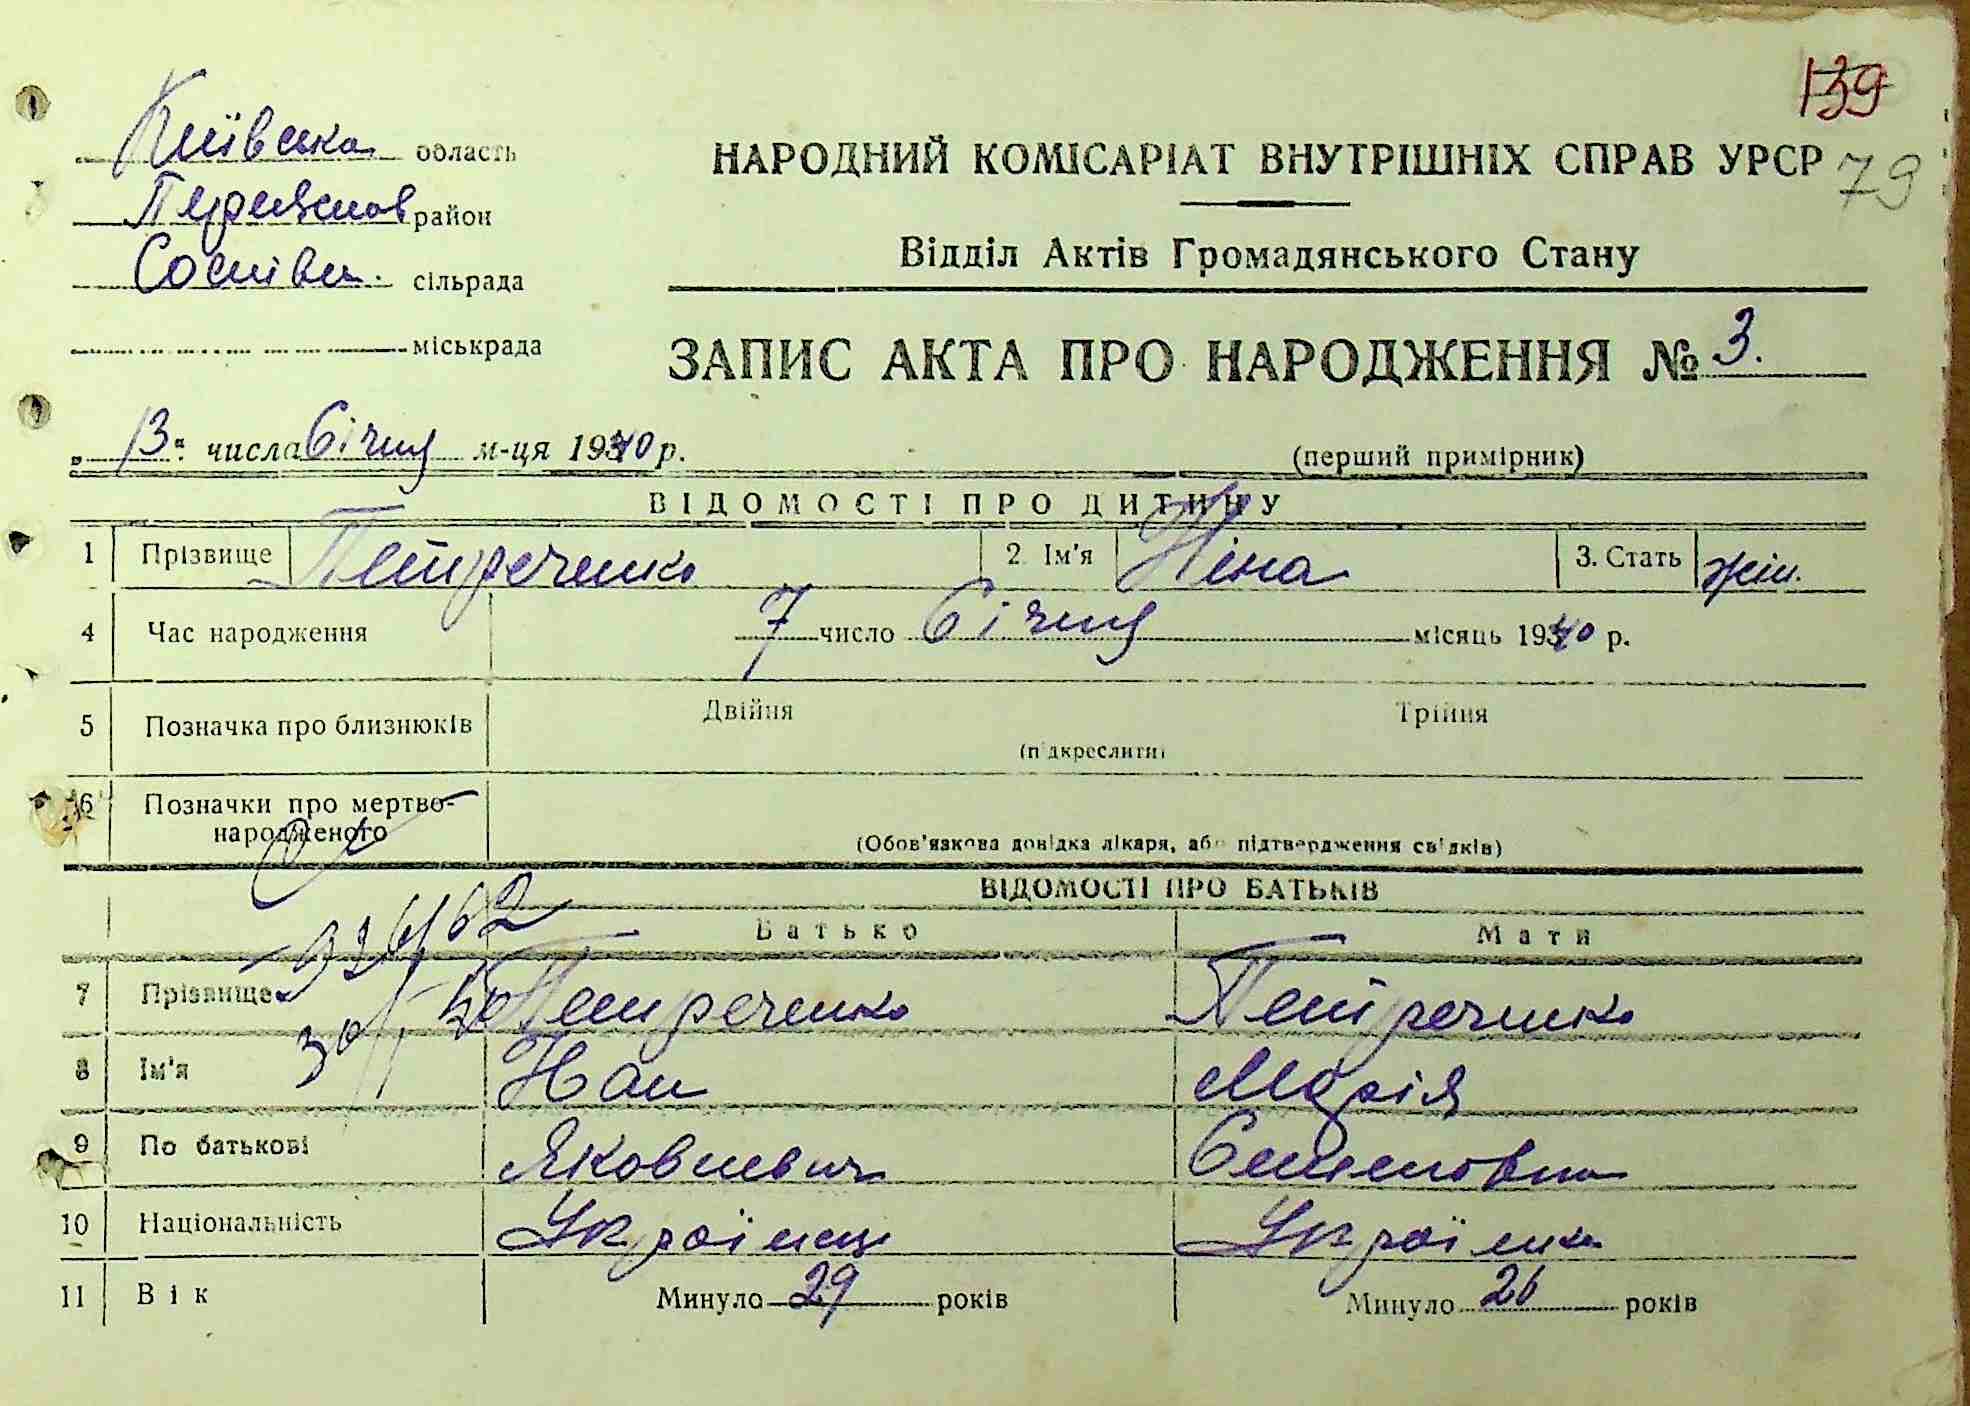 139
79
Київська область
Переяслов район
Соснівн. сільрада
міськрада
НАРОДНИЙ КОМІСАРІАТ ВНУТРІШНІХ СПРАВ УРСР
Відділ Актів Громадянського Стану
ЗАПИС АКТА ПРО НАРОДЖЕННЯ № 3.
„13“ числа Січня м-ця 1940 р.
(перший примірник)
ВІДОМОСТІ ПРО ДИТИНУ
1 Прізвище Петреченко 2. Ім'я Ніна 3. Стать жін.
4 Час народження 7 число Січня місяць 1940 р.
5 Позначка про близнюків Двійня Трійня
(підкреслити)
6 Позначки про мертво-
народженого
(Обов'язкова довідка лікаря, або підтвердження свідків)
ВІДОМОСТІ ПРО БАТЬКІВ
Батько Мати
7 Прізвище Петреченко Петреченко
8 Ім'я Іван Марія
9 По батькові Яковлевич Семеновна
10 Національність Українець Українка
11 Вік Минуло 29 років Минуло 26 років